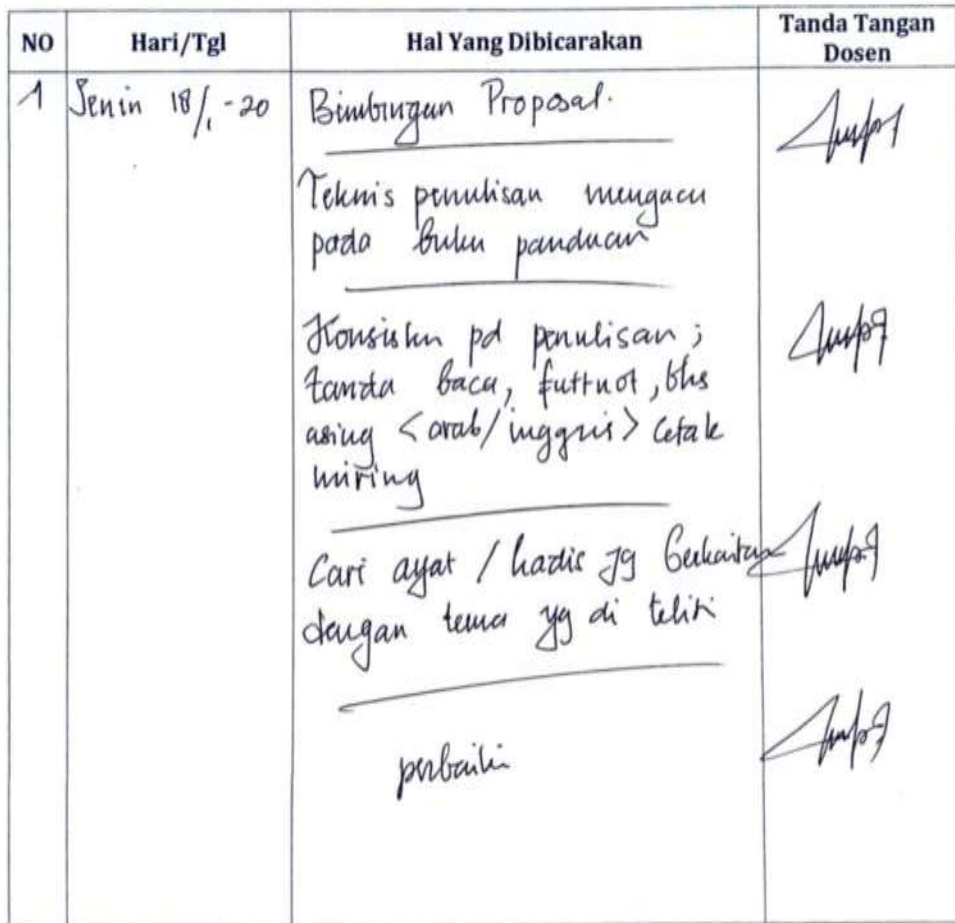 NO Hari/Tgl Hal Yang Dibicarakan Tanda Tangan
Dosen
1 Senin 18/1 -20 Bimbingan Proposal.
Teknis penulisan mengacu
pada buku panduan
Konsisten pd penulisan ;
tanda baca, futtnot, bhs
asing <arab/inggris> cetak
miring
Cari ayat / hadis yg berkaitan
dengan tema yg di teliti
perbaiki